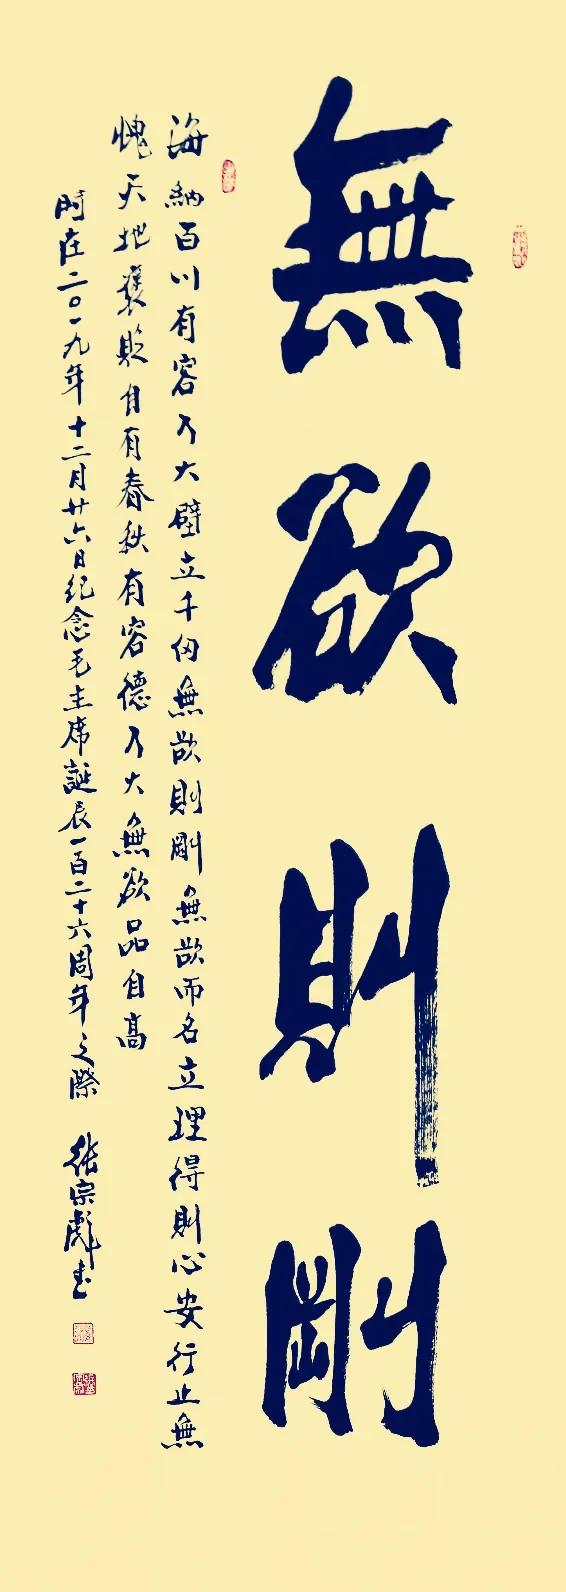 無欲則剛
海納百川有容乃大壁立千仞無欲則剛無欲而名立理得則心安行止無
愧天地褒貶自有春秋有容德乃大無欲品自高
時在二〇一九年十二月廿六日纪念毛主席誕辰一百二十六周年之際
張宗彪书